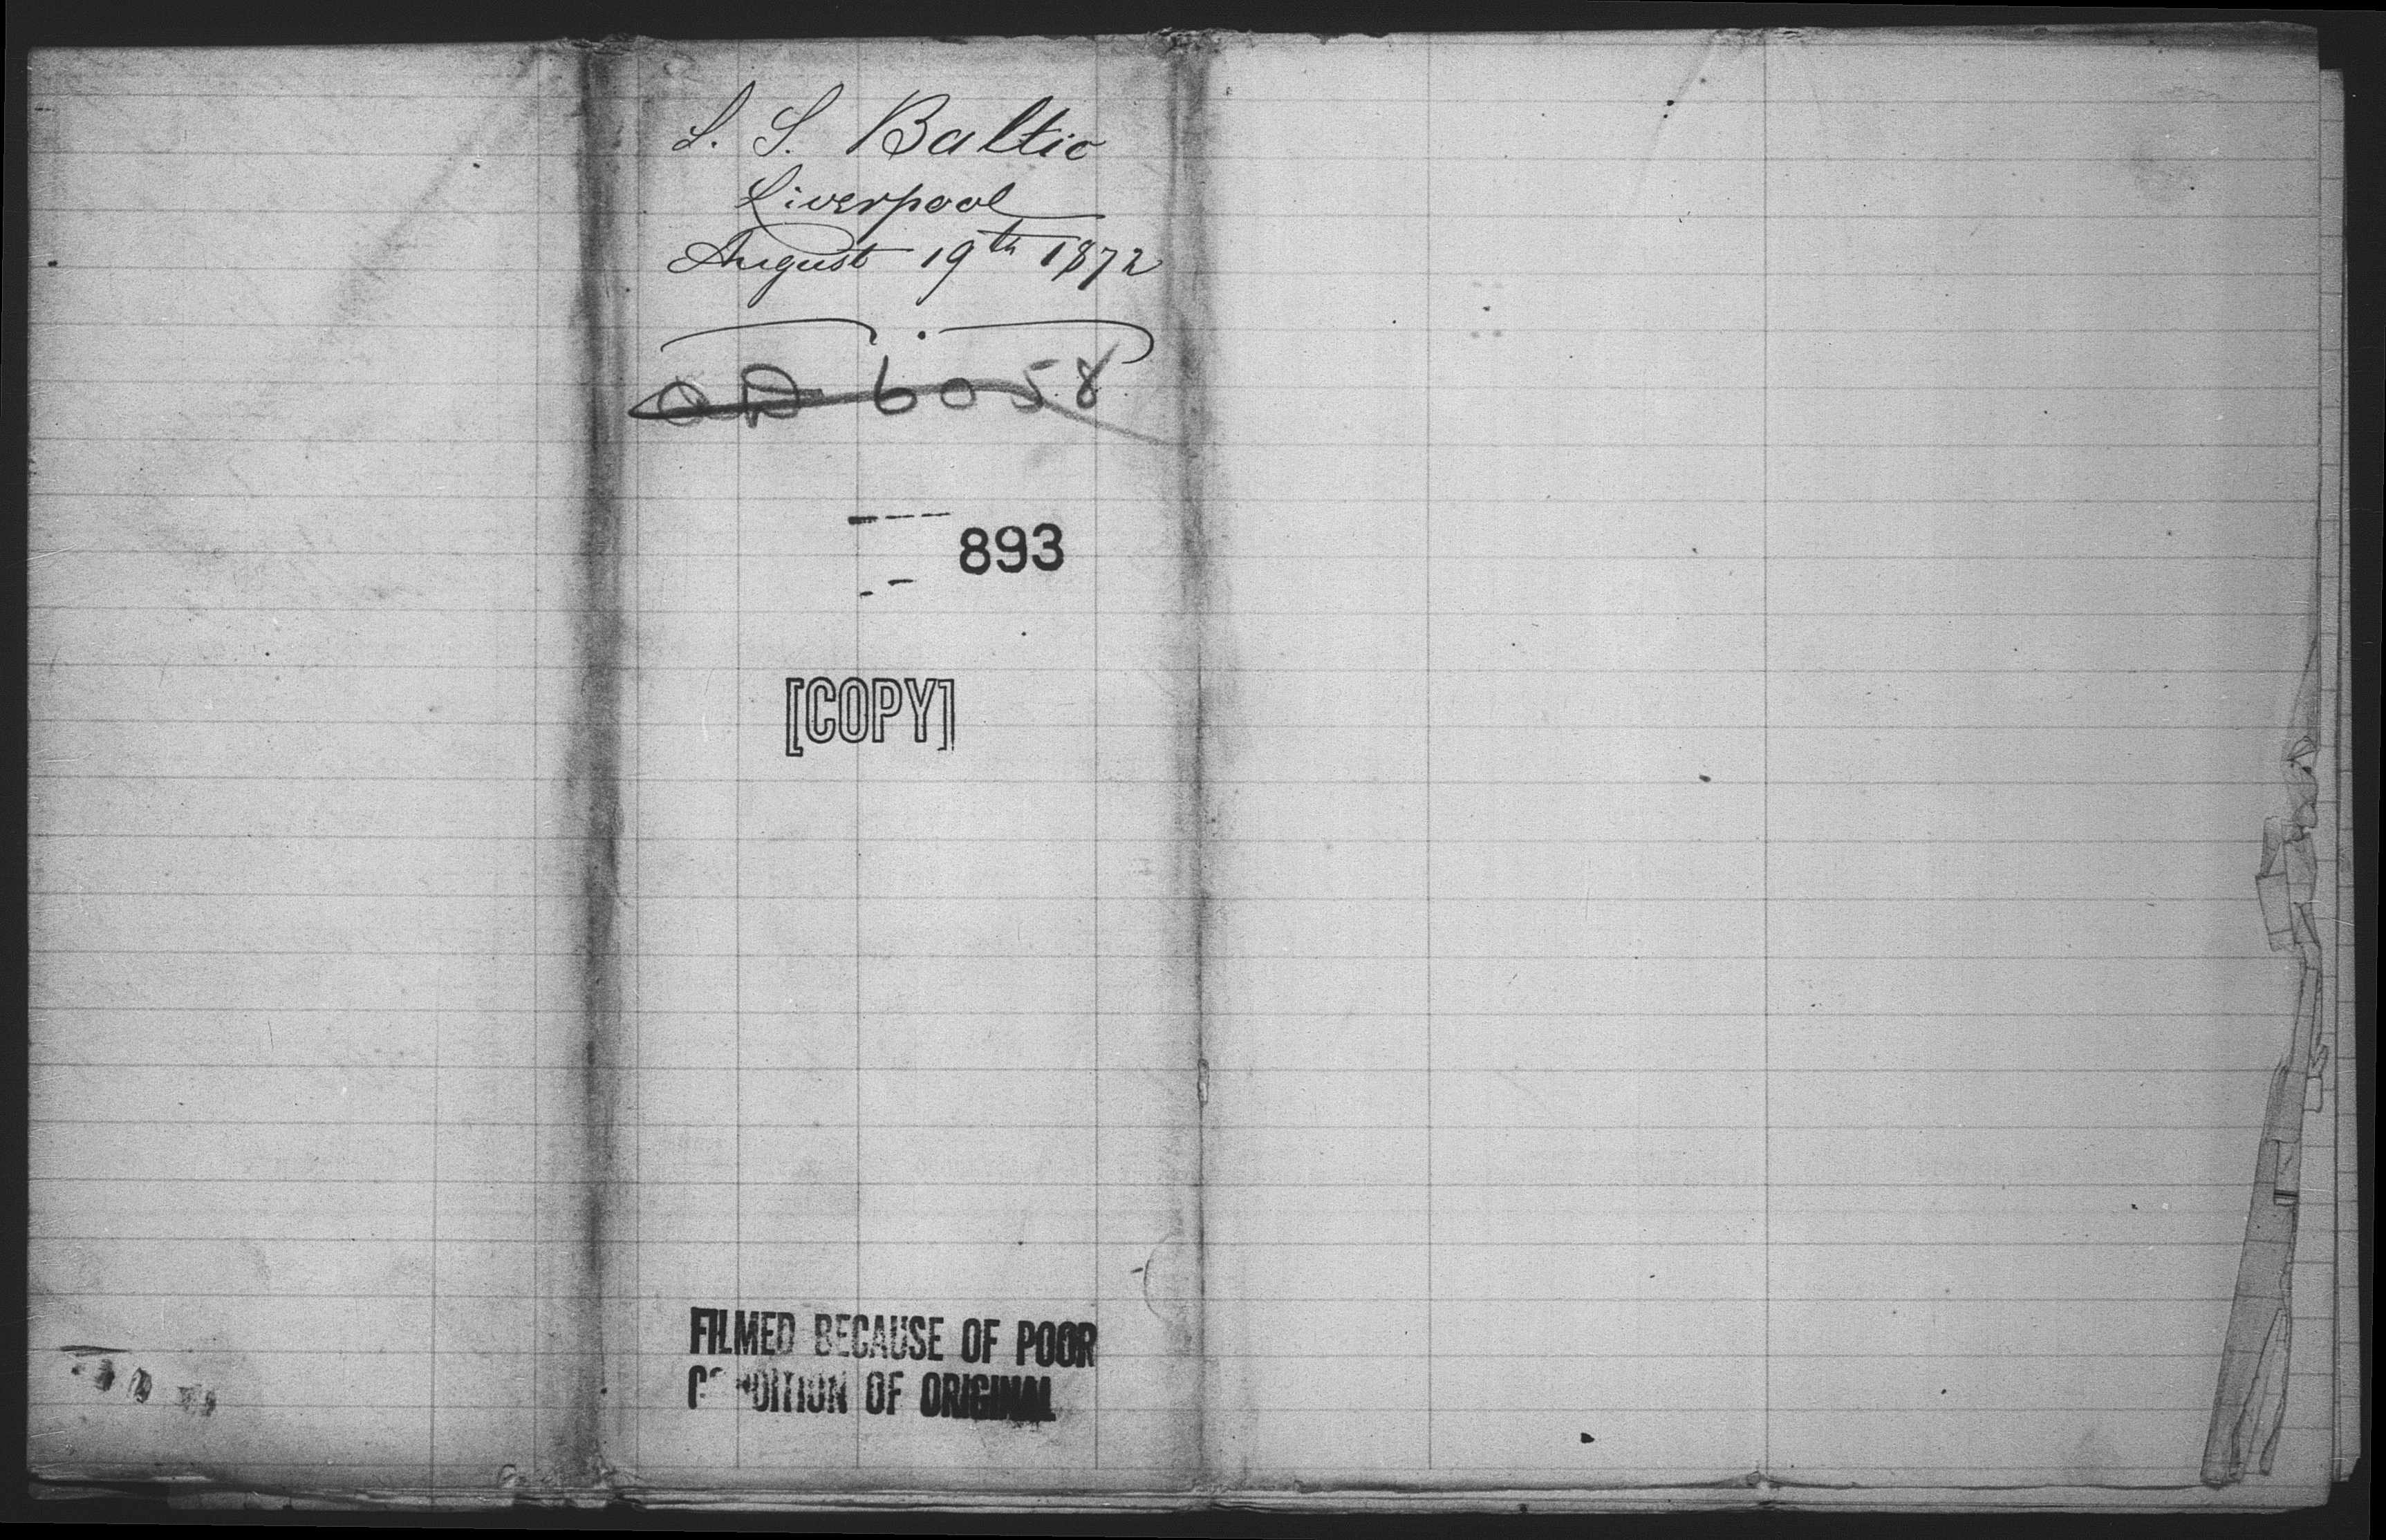 S. S. Baltic
Liverpool
August 19th 1872
6058
893
[COPY]
FILMED BECAUSE OF POOR
CONDITION OF ORIGINAL